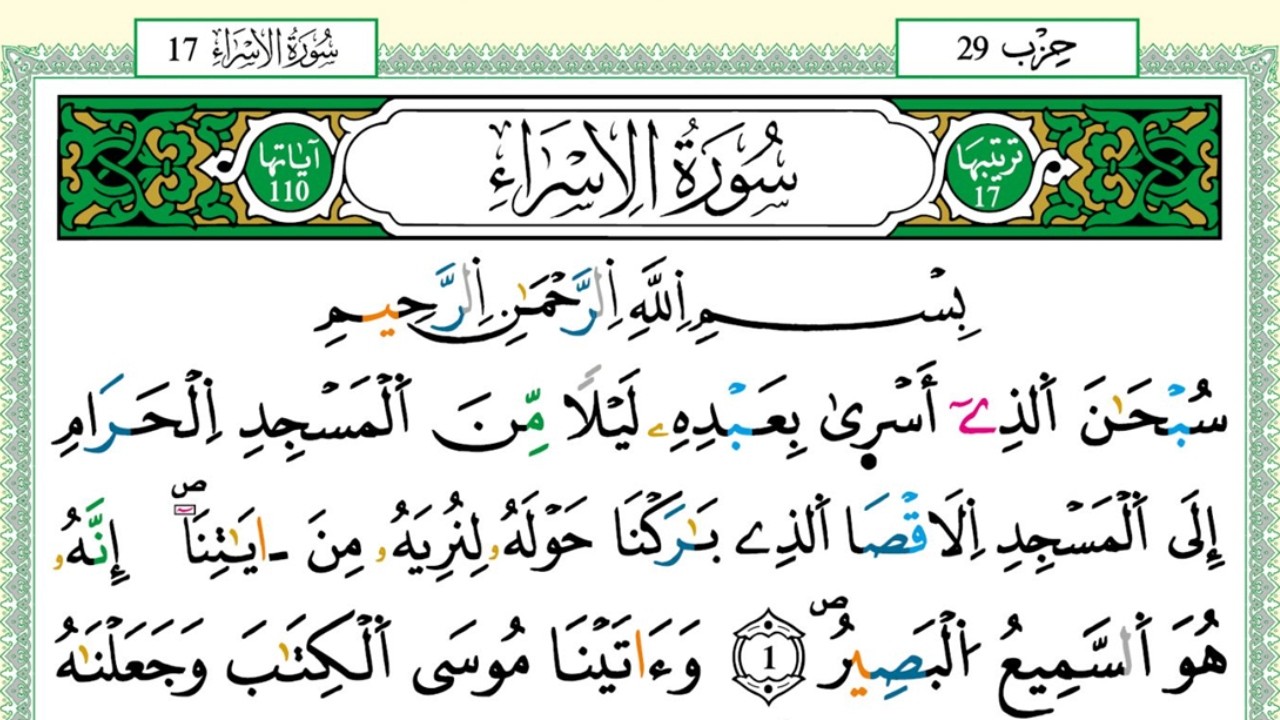 حِزْب 29
سُورَةُ الِاسْرَاءِ 17
تَرتِيبُهَا 17
سُورَةُ الِاسْرَاءِ
آيَاتُهَا 110
بِسْمِ اِ۬للَّهِ اِ۬لرَّحْمَٰنِ اِ۬لرَّحِيمِ
سُبْحَٰنَ اَ۬لذِےٓ أَسْر۪ىٰ بِعَبْدِهِۦ لَيْلاً مِّنَ اَ۬لْمَسْجِدِ اِ۬لْحَرَامِ
إِلَى اَ۬لْمَسْجِدِ اِ۬لَاقْصَا اَ۬لذِے بَٰرَكْنَا حَوْلَهُۥ لِنُرِيَهُۥ مِنَ ـ ايَٰتِنَآۖ إِنَّهُۥ
هُوَ اَ۬لسَّمِيعُ اُ۬لْبَصِيرُۖ 1 وَءَاتَيْنَا مُوسَى اَ۬لْكِتَٰبَ وَجَعَلْنَٰهُ